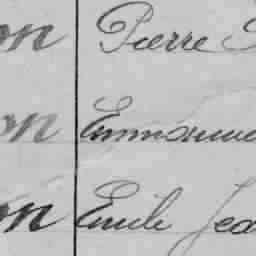 on Pierre
on Emmanue
on Emile Jea